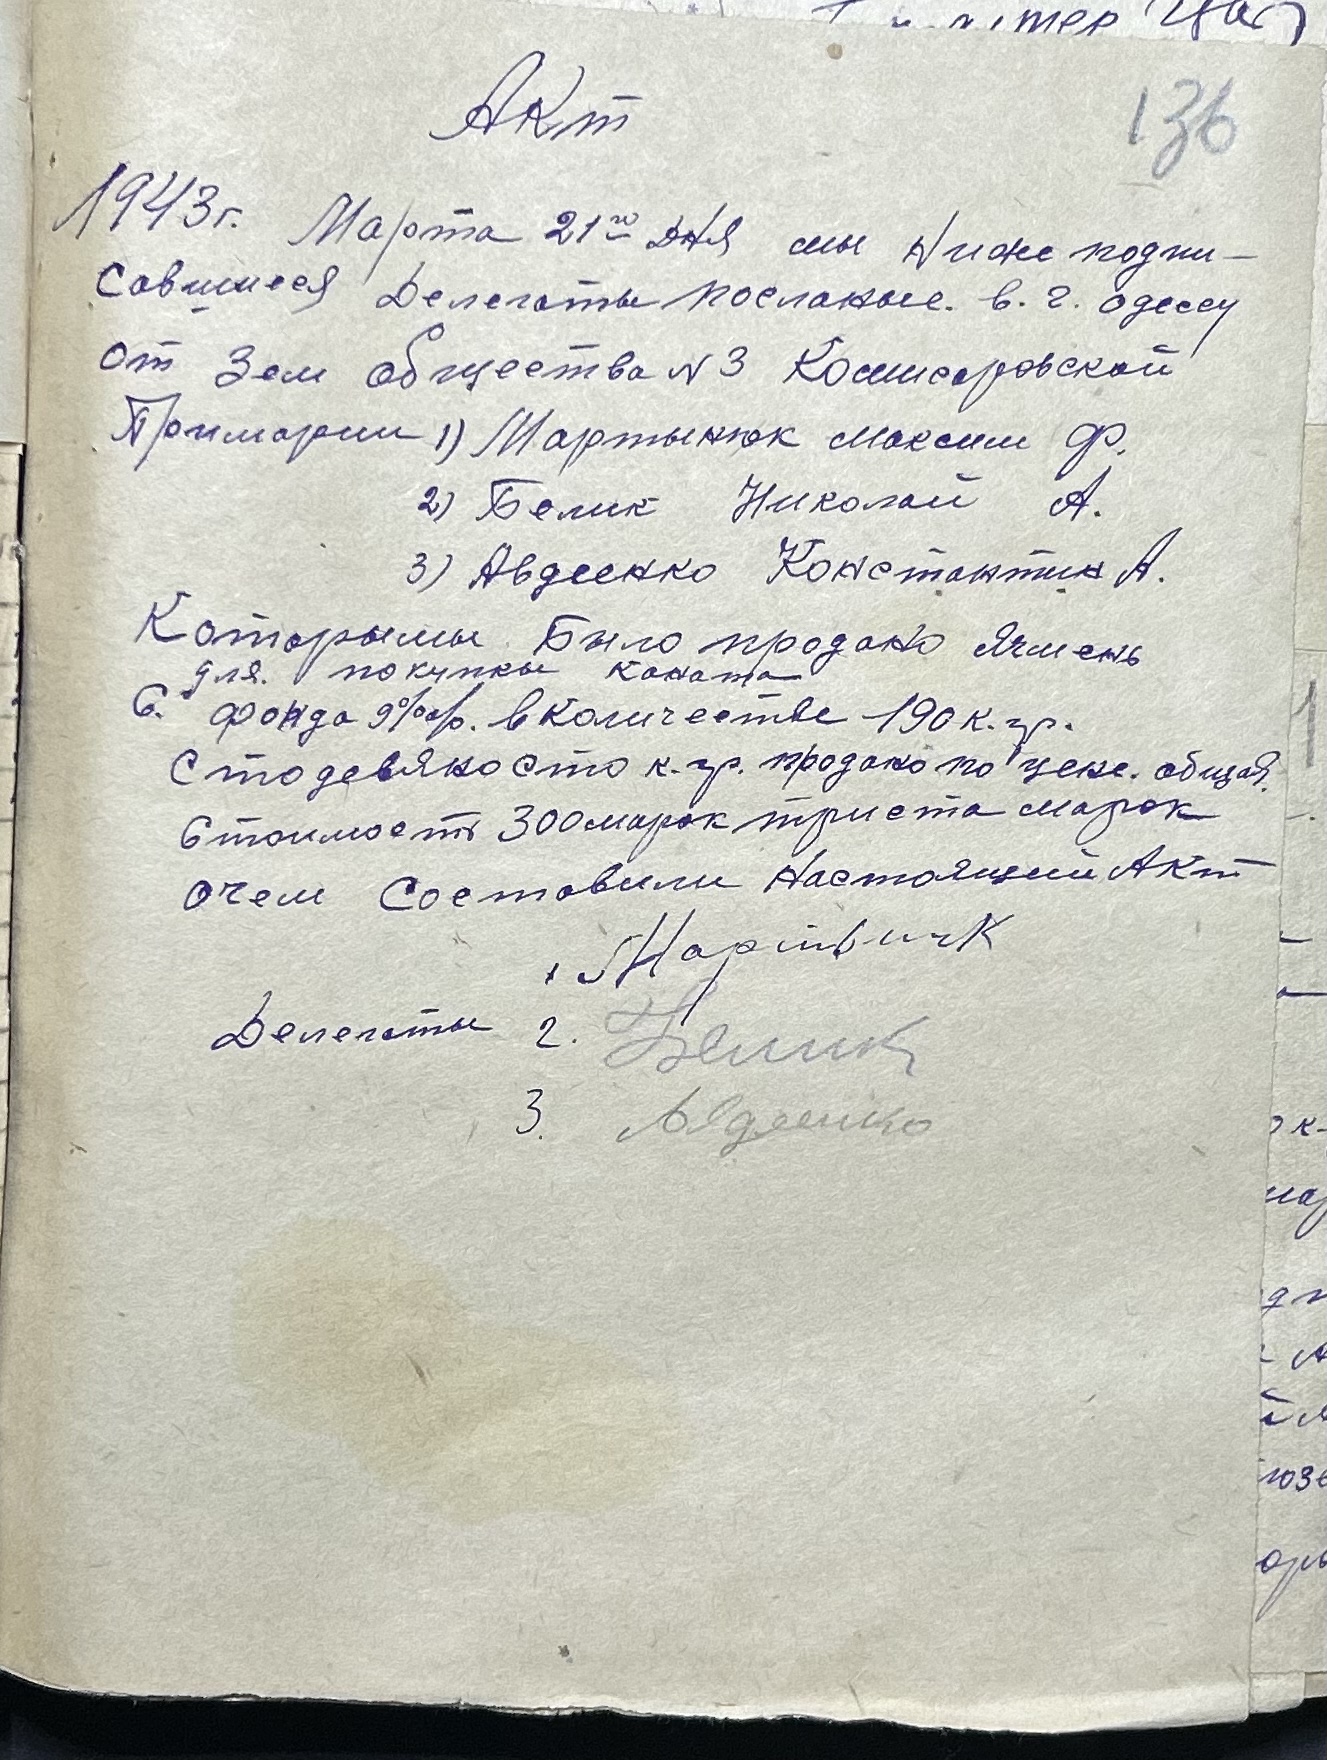 136
Акт
1943г. Марта 21го дня мы Ниже подпи-
савшиеся Делегаты посланые. в. г. одессу
от Зем общества N 3 Комисаровской
Примарии 1) Мартынюк Максим Ф.
2) Белик Николай А.
3) Авдеенко Константин А.
Которымы Было продано Ячмень
для. покупкы каната
с. фонда в количестве 190 к. гр.
Стодевяносто к. гр. продано по цене. общая.
Стоимость 300 марок триста марок
Очем Составили Настоящий Акт
1
Делегаты 2. Белик
3. Авдеенко